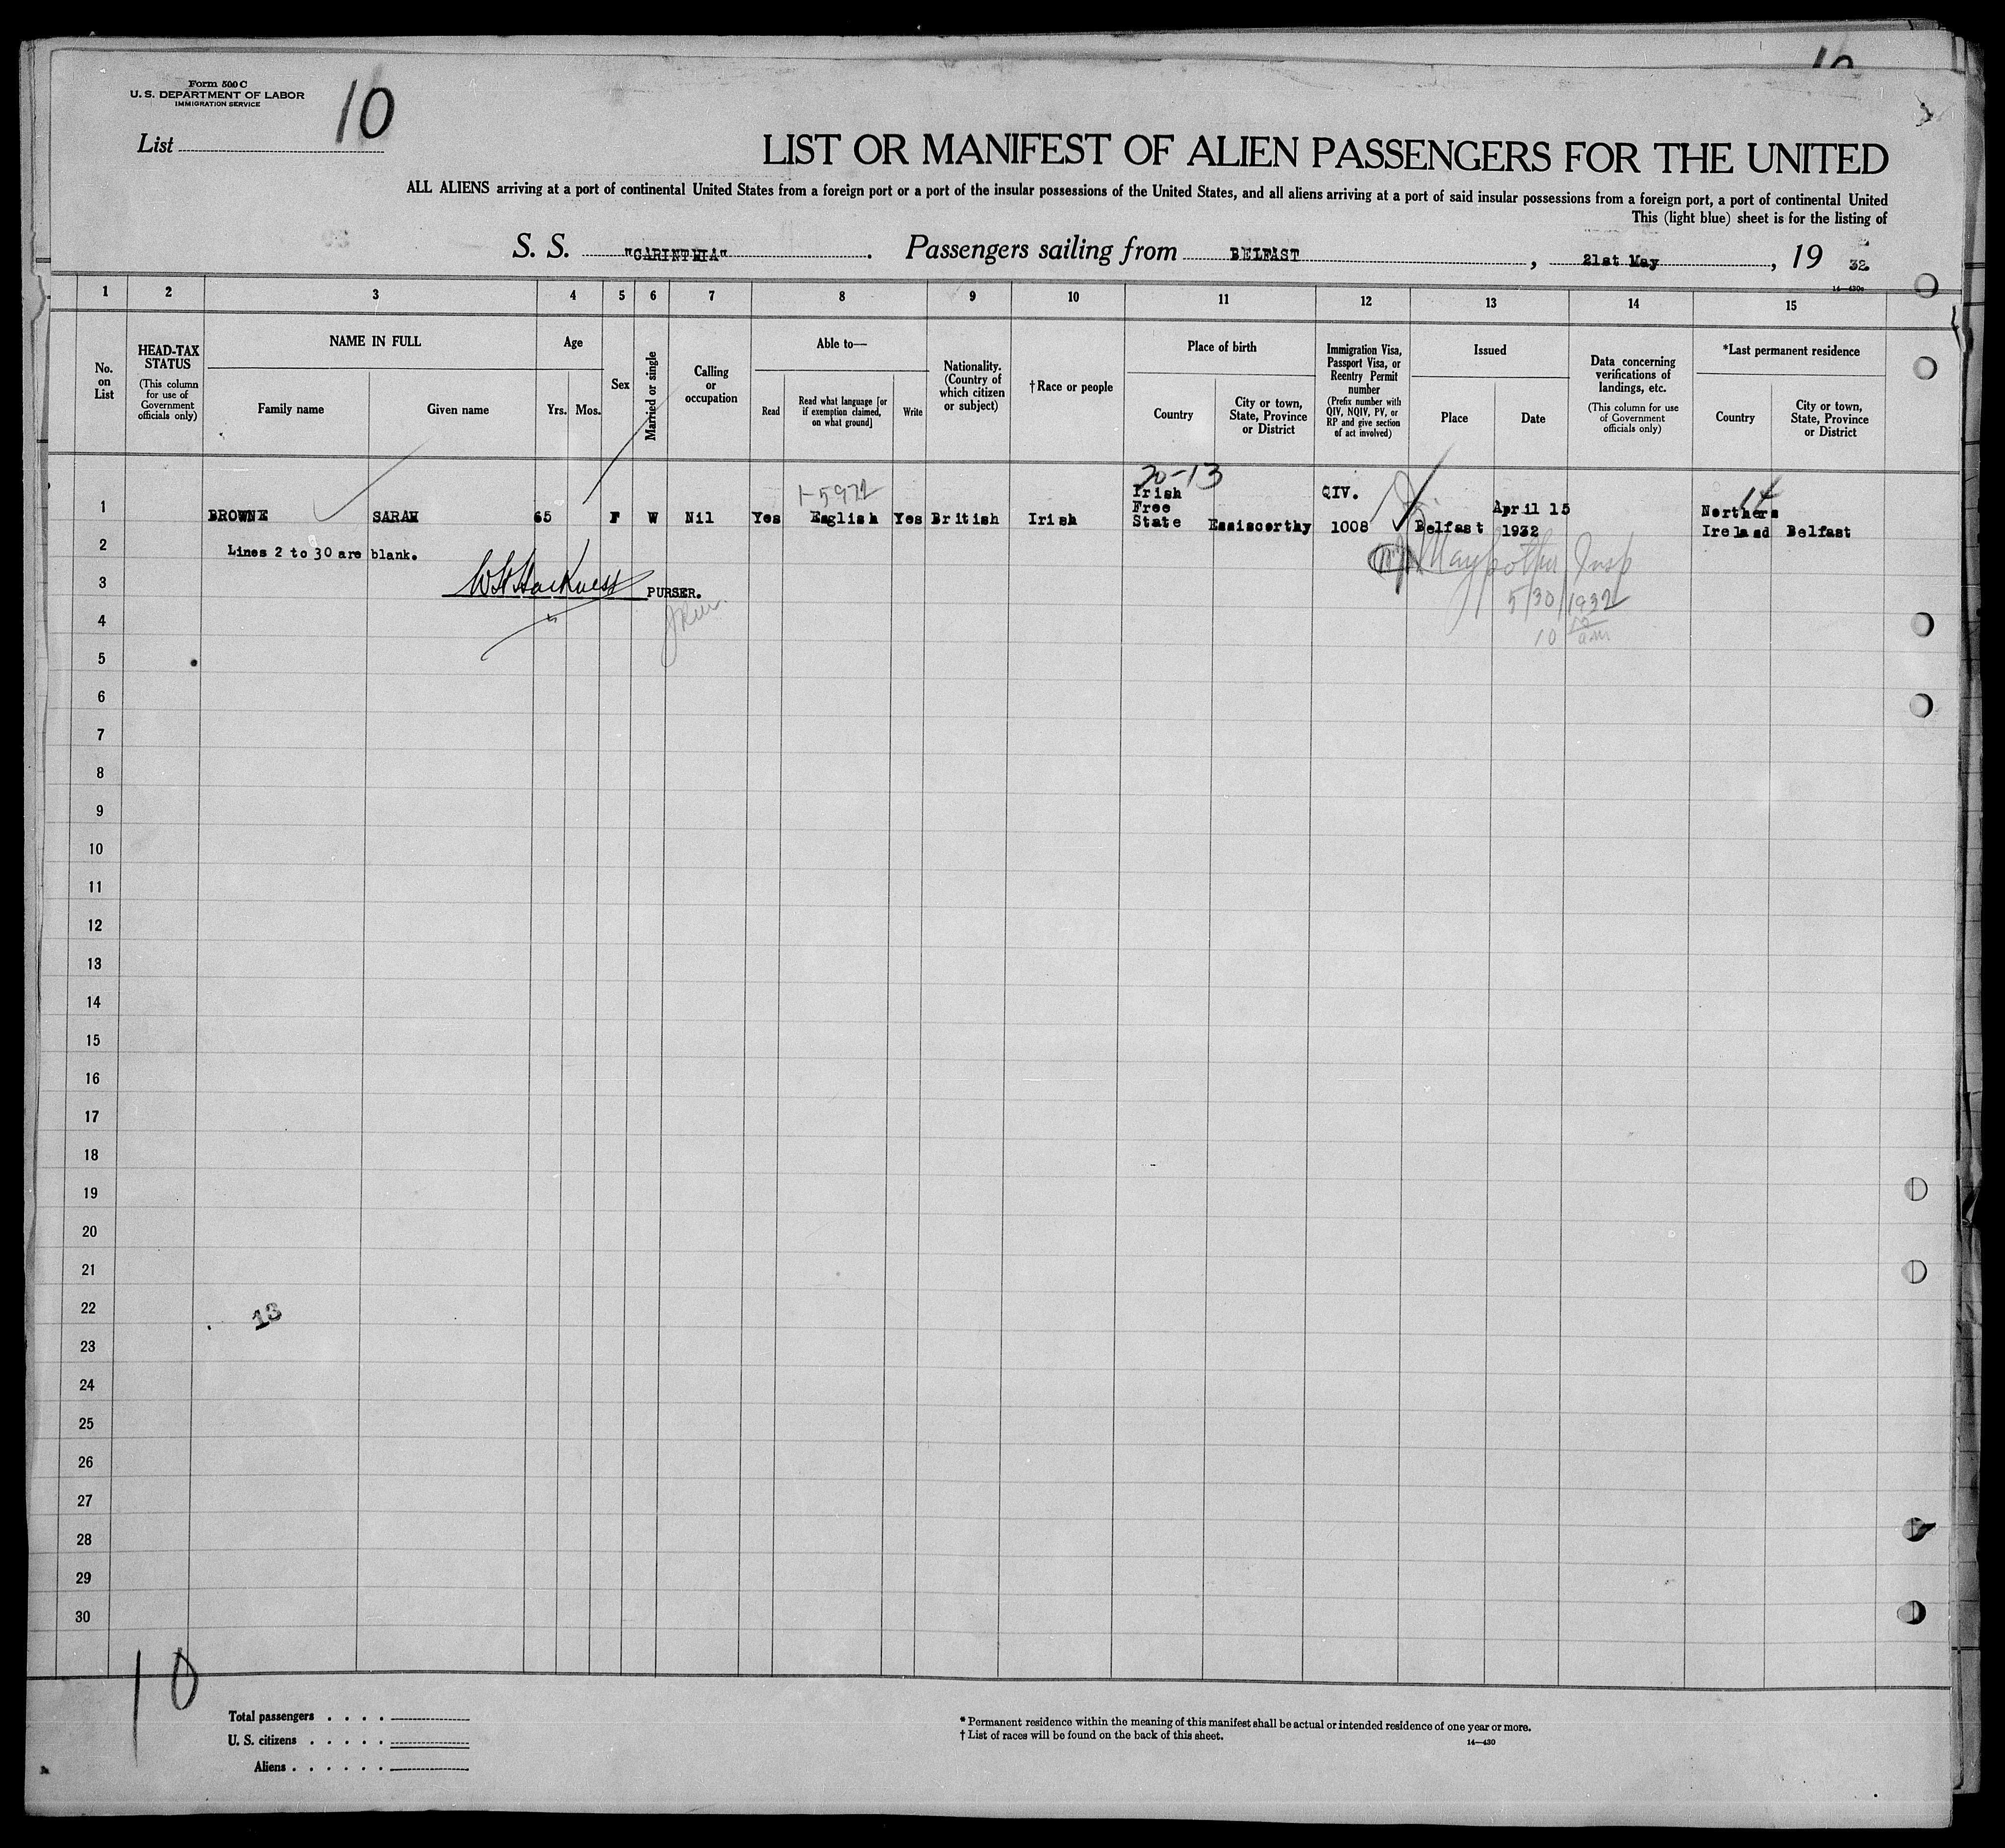 Form 500 C
U. S. DEPARTMENT OF LABOR
IMMIGRATION SERVICE
List 10
10
LIST OR MANIFEST OF ALIEN PASSENGERS FOR THE UNITED
ALL ALIENS arriving at a port of continental United States from a foreign port or a port of the insular possessions of the United States, and all aliens arriving at a port of said insular possessions from a foreign port, a port of continental United
This (light blue) sheet is for the listing of
S. S. "CARINTHIA". Passengers sailing from BELFAST, 21st May, 19 32.
14—430c
1 2 3 4 5 6 7 8 9 10 11 12 13 14 15
No. on List
HEAD-TAX STATUS
(This column for use of Government officials only)
NAME IN FULL
Family name
Given name
Age
Yrs. Mos.
Sex
Married or single
Calling or occupation
Able to—
Read
Read what language [or if exemption claimed, on what ground]
Write
Nationality. (Country of which citizen or subject)
†Race or people
Place of birth
Country
City or town, State, Province or District
Immigration Visa, Passport Visa, or Reentry Permit number
(Prefix number with QIV, NQIV, PV, or RP and give section of act involved)
Issued
Place
Date
Data concerning verifications of landings, etc.
(This column for use of Government officials only)
*Last permanent residence
Country
City or town, State, Province or District
20-13
1-5972
14
1 BROWNE SARAH 65 F W Nil Yes English Yes British Irish Irish Free State Enniscorthy QIV. 1008 Belfast April 15 1932 Northern Ireland Belfast
2 Lines 2 to 30 are blank.
Insp
3 PURSER.
5/30/1932
4
10 am
5
6
7
8
9
10
11
12
13
14
15
16
17
18
19
20
21
22 13
23
24
25
26
27
28
29
30
10
Total passengers . . . .
U. S. citizens . . . . .
Aliens . . . . . .
* Permanent residence within the meaning of this manifest shall be actual or intended residence of one year or more.
† List of races will be found on the back of this sheet.
14—430